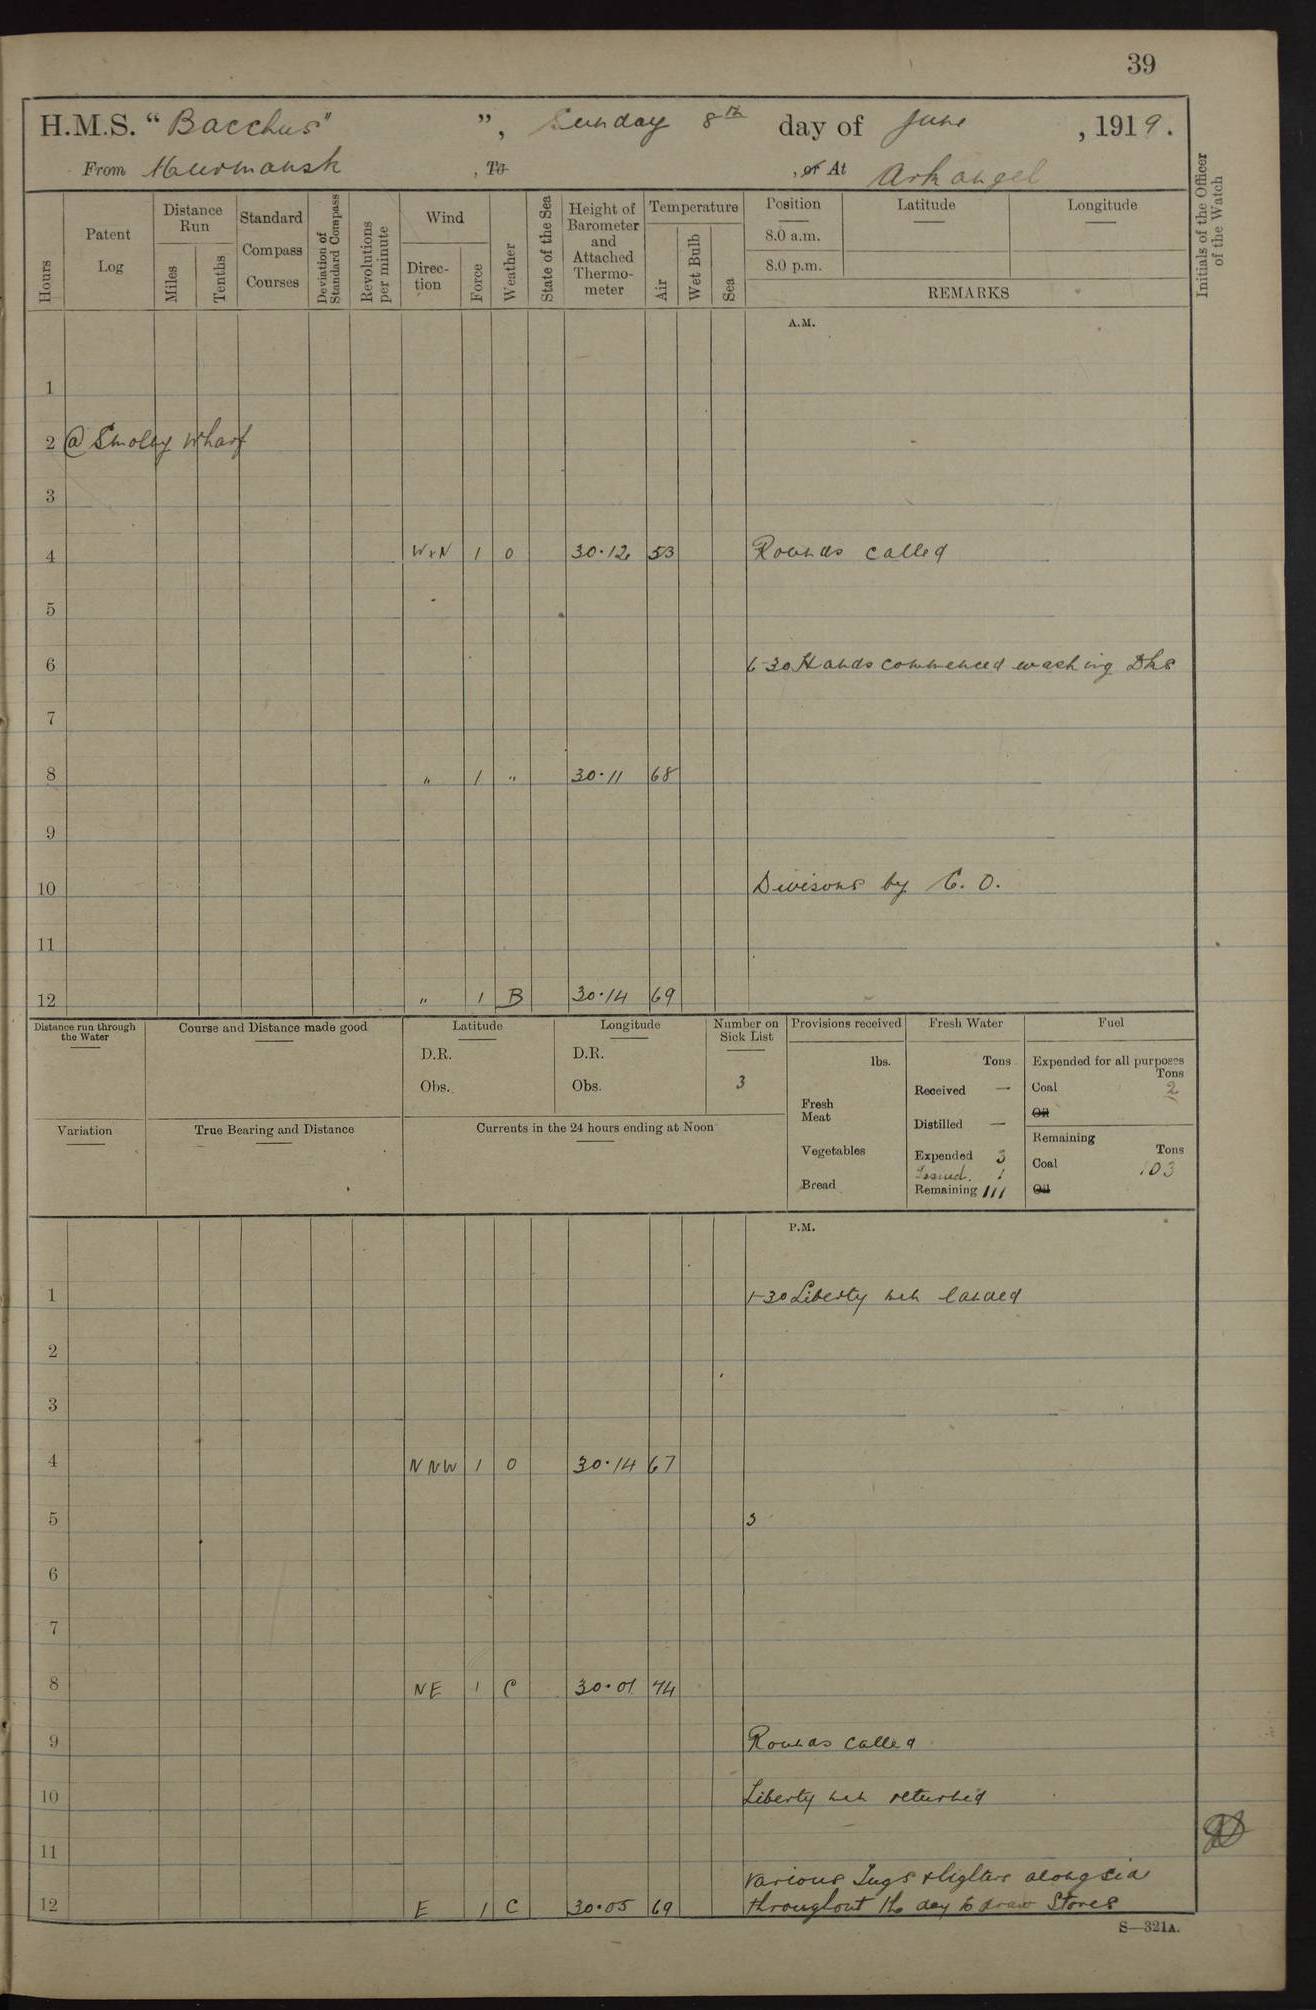 39
H.M.S. “Bacchus” ”, Sunday 8th day of June , 1919.
From Mourmansk , To , or At Arkangel
Initials of the Officer of the Watch
Hours
Patent Log
Distance Run
Miles
Tenths
Standard Compass Courses
Deviation of Standard Compass
Revolutions per minute
Wind
Direction
Force
Weather
State of the Sea
Height of Barometer and Attached Thermometer
Temperature
Air
Wet Bulb
Sea
Position
8.0 a.m.
8.0 p.m.
Latitude
Longitude
REMARKS
A.M.
1
2 @ Smolny Wharf
3
4 WxN 1 O 30.12 53 Rounds called
5
6 6-30 Hands commenced washing Dks
7
8 " 1 " 30.11 68
9
10 Divisons by C. O.
11
12 " 1 B 30.14 69
Distance run through the Water
Course and Distance made good
Latitude
D.R.
Obs.
Longitude
D.R.
Obs.
Number on Sick List
3
Provisions received
lbs.
Fresh Meat
Vegetables
Bread
Fresh Water
Tons
Received —
Distilled —
Expended 3
Issued. 1
Remaining 111
Fuel
Expended for all purposes
Tons
Coal 2
Oil
Remaining
Tons
Coal 103
Oil
Variation
True Bearing and Distance
Currents in the 24 hours ending at Noon
P.M.
1 1-30 Liberty men landed
2
3
4 NNW 1 O 30.14 67
5 3
6
7
8 NE 1 C 30.01 74
9 Rounds called
10 Liberty men returned
11
various Tugs & lighters alongsid
12 E 1 C 30.05 69 throughout the day to draw Stores
S—321A.